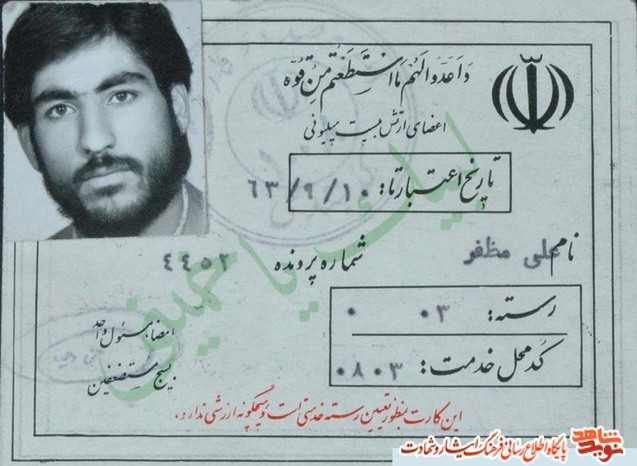 وَاَعِدّوا لَهُم مَا اسْتَطَعْتُم مِن قُوَّه
اعضای ارتش بیست میلیونی
تاریخ اعتبار تا: ۶۳/۹/۱۰
نام علی مظفر
شماره پرونده ۴۴۵۲
رسته: ۰۳ ۰
کد محل خدمت: ۰۸۰۳
امضاء مسئول واحد
بسیج مستضعفین
لبیک یا خمینی
این کارت بمنظور تعیین رسته خدمتی است و هیچگونه ارزشی ندارد.
نوید شاهد
پایگاه اطلاع رسانی فرهنگ ایثار و شهادت